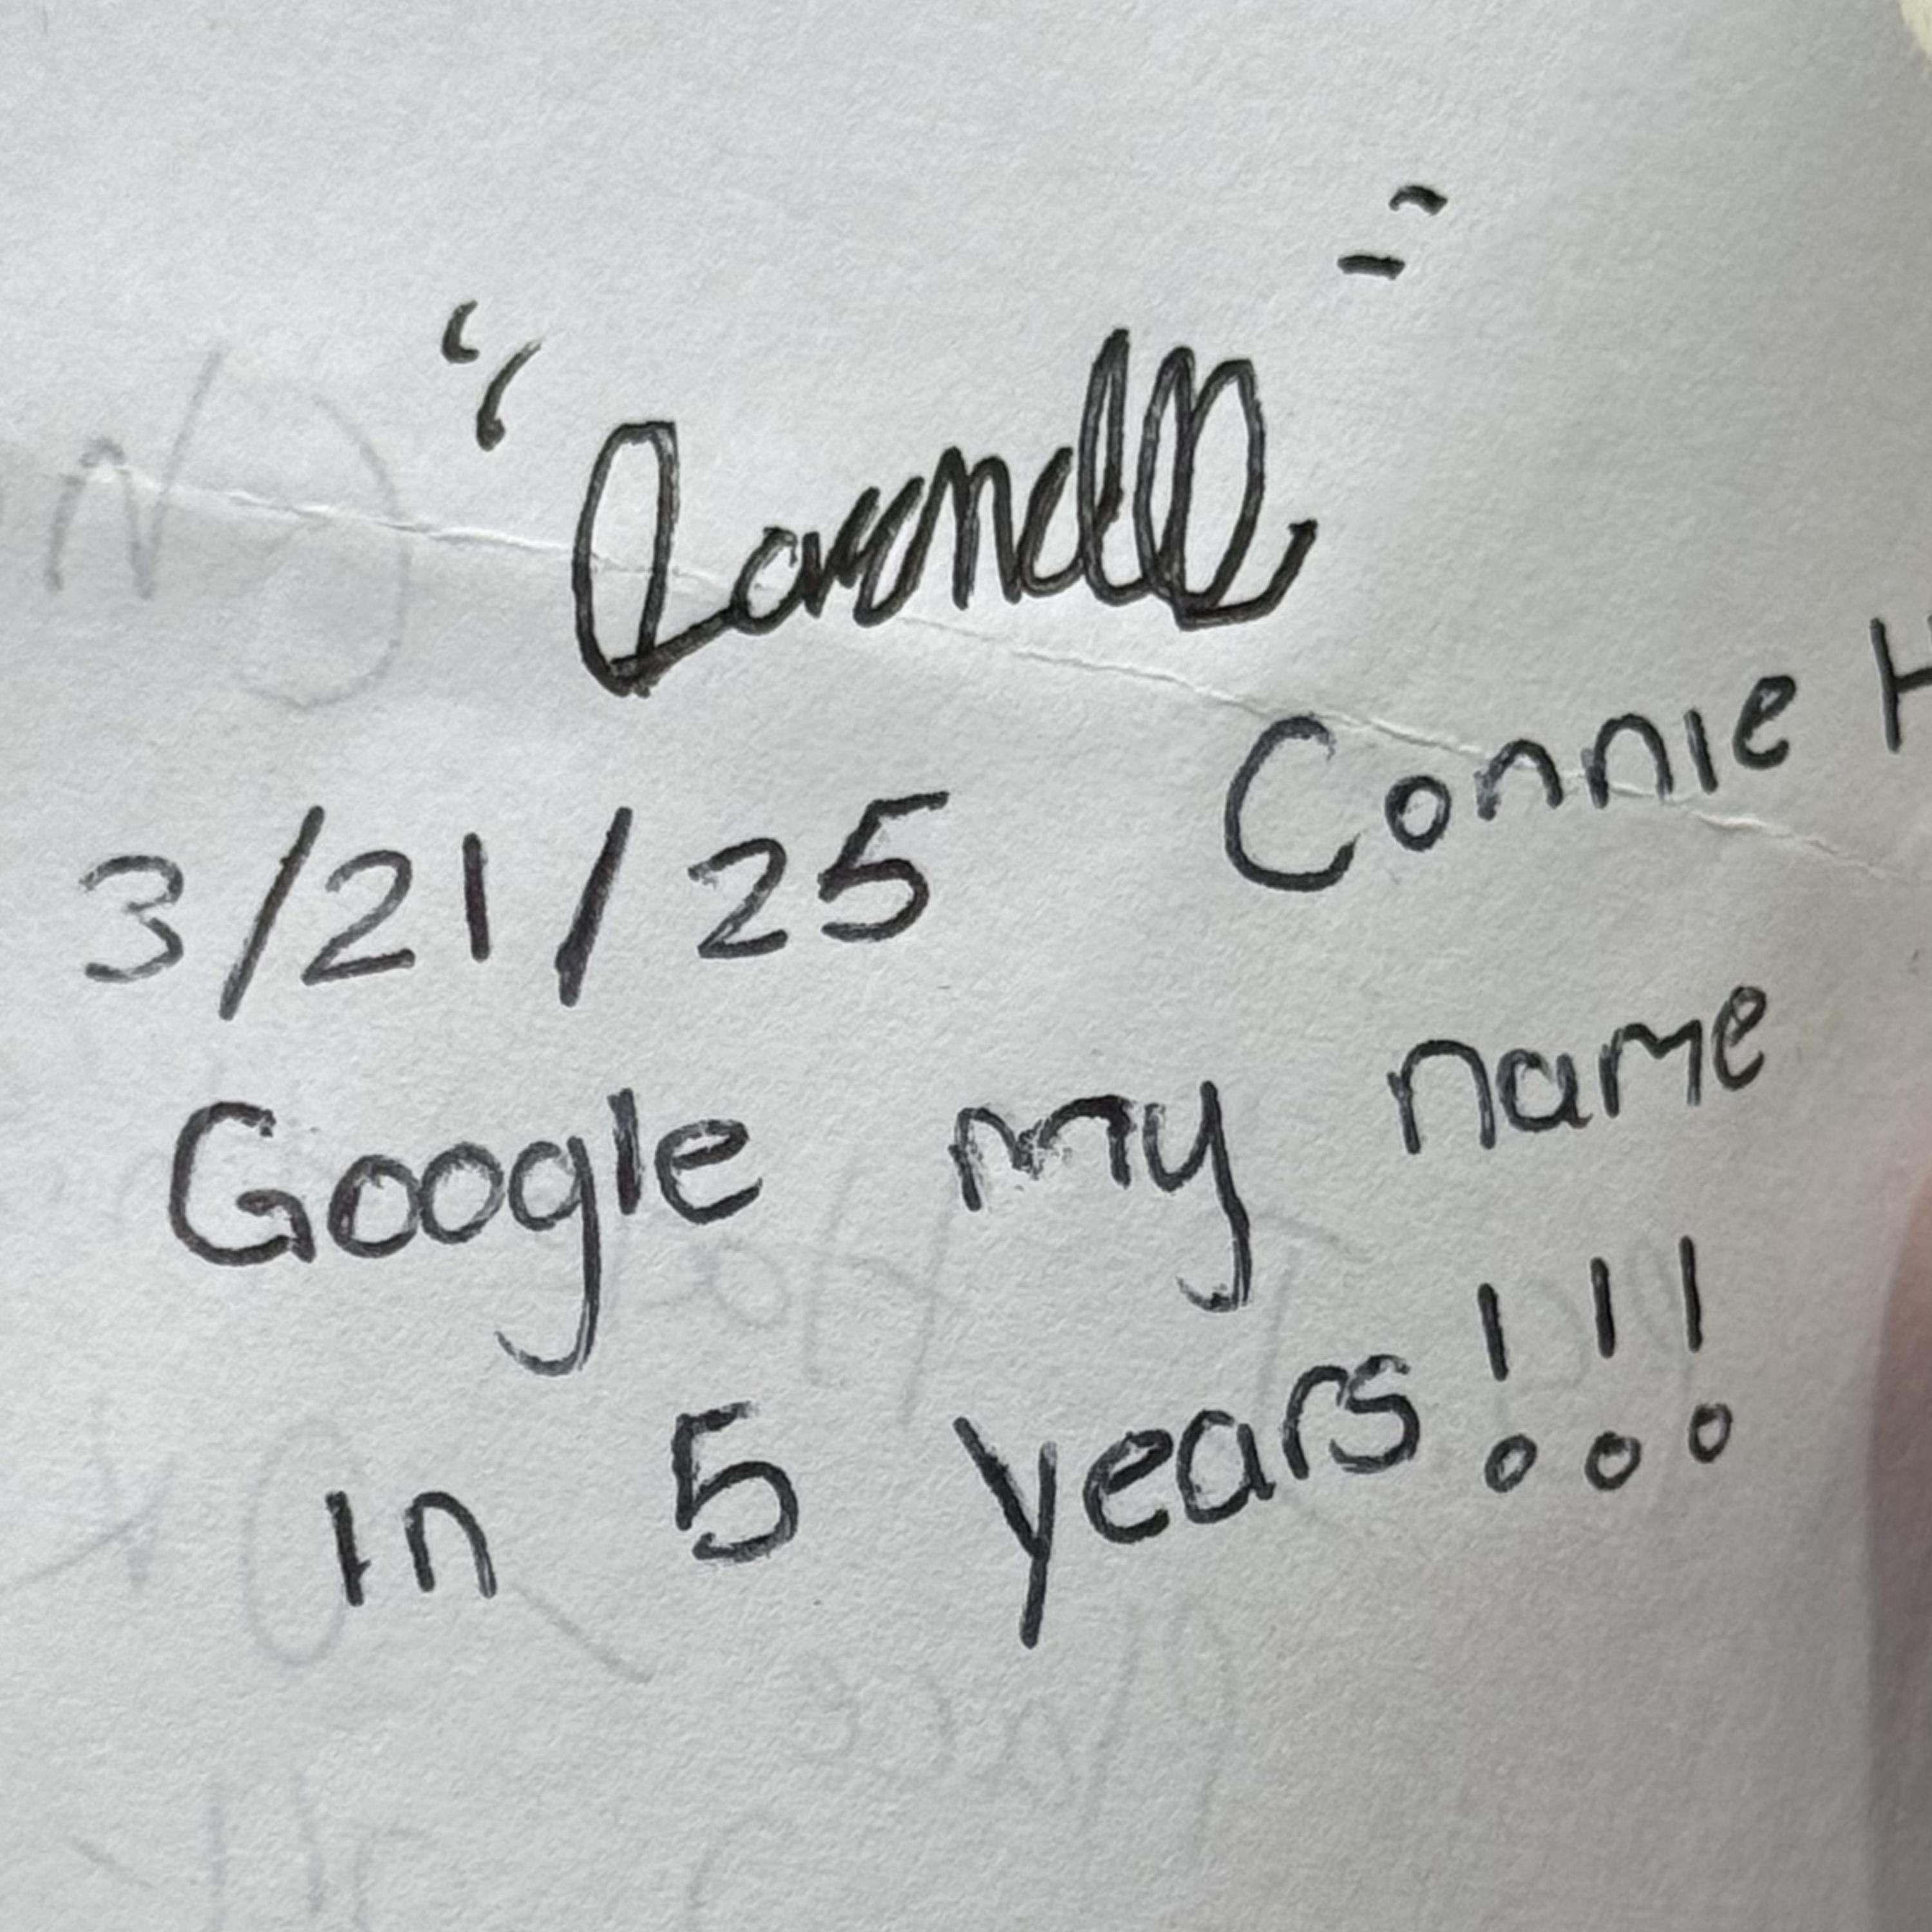 3/21/25 Connie H
Google my name
in 5 years!!!